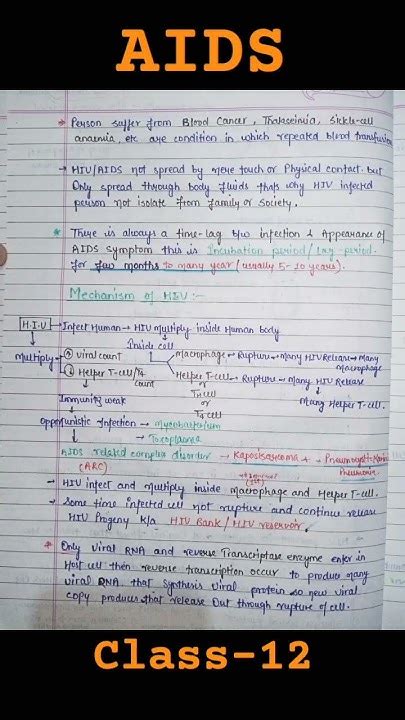 AIDS
* Person suffer from Blood Cancer, Thalaseimia, Sickle-cell
anaemia, etc are condition in which repeated blood transfusion
→ HIV/AIDS not spread by mere touch or Physical contact. but
Only spread through body fluids that's why HIV infected
person not isolate from family or society.
* There is always a time-lag b/w infection & Appearance of
AIDS symptom this is Incubation period / Lag-period.
for few months to many year (usually 5-10 years).
Mechanism of HIV :-
H.I.V → Infect Human → HIV Multiply inside Human body
Inside cell
Multiply → ↑ viral count
Macrophage → Rupture → Many HIV Release → Many Macrophage
↓ Helper T-cell/T4 count
Helper T-cell → Rupture → Many HIV Release
or
TH cell
or
T4 cell
Many Helper T-cell.
Immunity weak
Opportunistic Infection → Mycobacterium
→ Toxoplasma
AIDS related complex disorder → Kaposissarcoma + Pneumocystis
(ARC)
Pneumonia
→ HIV infect and multiply inside macrophage and Helper T-cell.
→ Some time infected cell not rupture and continue release
HIV Progeny k/a HIV Bank / HIV reservoir.
* Only viral RNA and reverse Transcriptase enzyme enter in
Host cell then reverse transcription occur to produce many
viral RNA that synthesis viral protein so new viral
copy produces that release out through rupture of cell.
Class-12